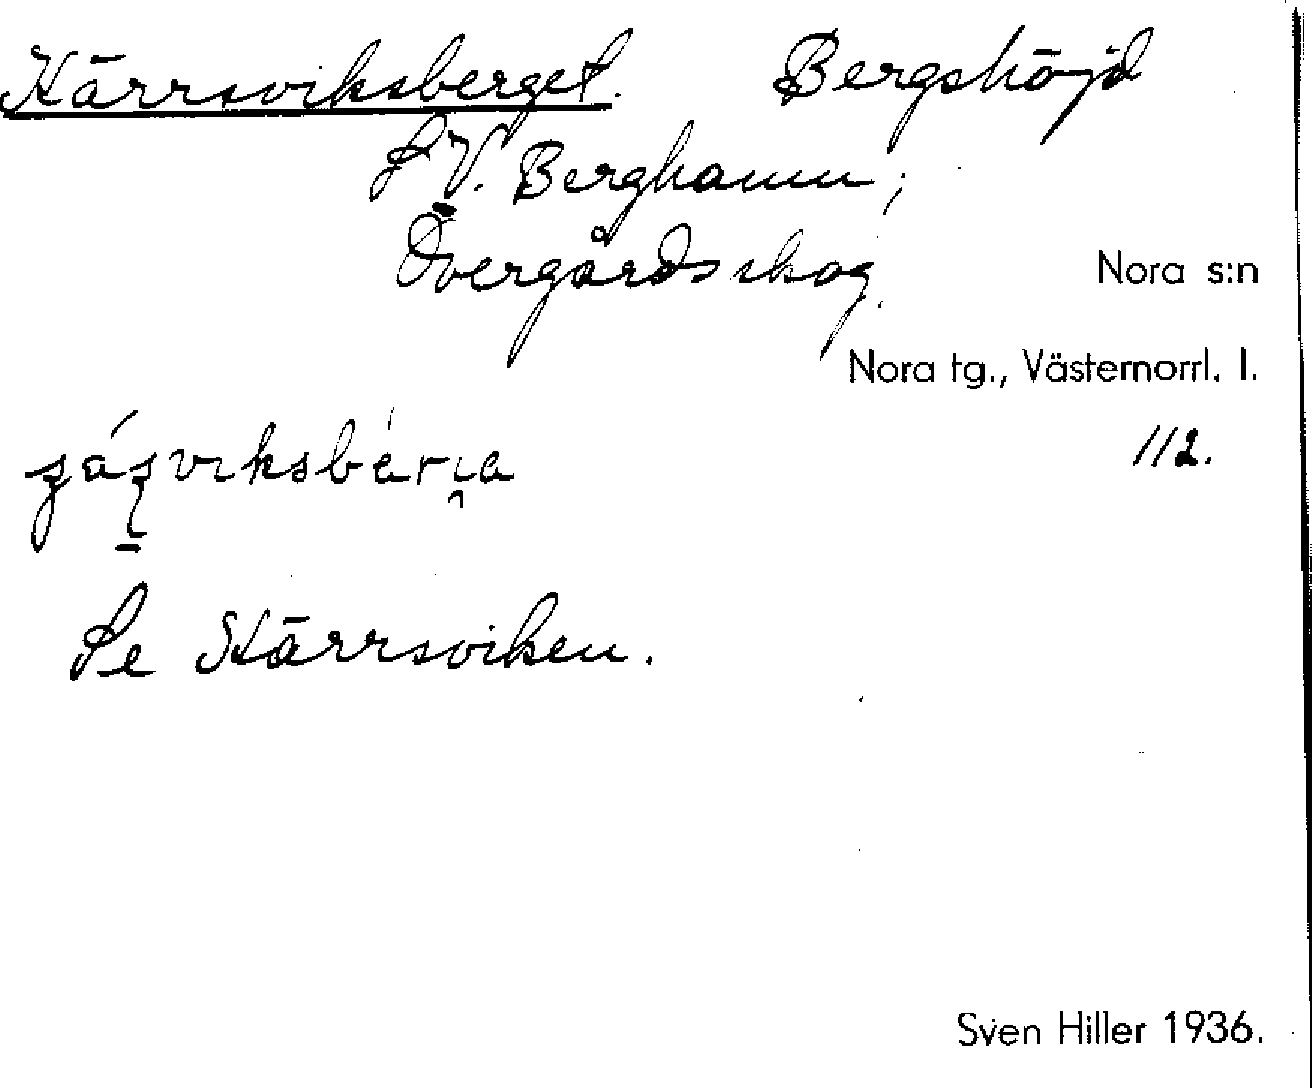 Kärrsviksberget. Bergshöjd
S V. Berghamn;
Övergårdsskog.
Nora s:n
Nora tg., Västernorrl. l.
112.
Se Kärrsviken.
Sven Hiller 1936.